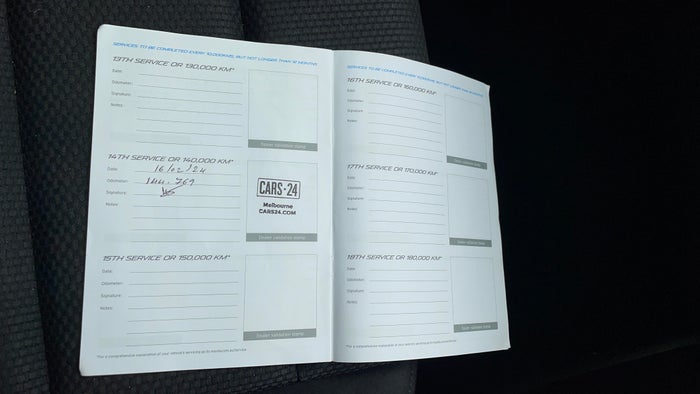 SERVICES TO BE COMPLETED EVERY 10,000KMS, BUT NOT LONGER THAN 12 MONTHS
13TH SERVICE OR 130,000 KM*
Date:
Odometer:
Signature:
Notes:
Dealer validation stamp
14TH SERVICE OR 140,000 KM*
Date: 16/02/24
Odometer: 144.769
Signature:
Notes:
CARS·24
Melbourne
CARS24.COM
Dealer validation stamp
15TH SERVICE OR 150,000 KM*
Date:
Odometer:
Signature:
Notes:
Dealer validation stamp
*For a comprehensive explanation of your vehicle's servicing go to
SERVICES TO BE COMPLETED EVERY 10,000KMS, BUT NOT LONGER THAN 12 MONTHS
16TH SERVICE OR 160,000 KM*
Date:
Odometer:
Signature:
Notes:
Dealer validation stamp
17TH SERVICE OR 170,000 KM*
Date:
Odometer:
Signature:
Notes:
Dealer validation stamp
18TH SERVICE OR 180,000 KM*
Date:
Odometer:
Signature:
Notes:
Dealer validation stamp
*For a comprehensive explanation of your vehicle's servicing go to